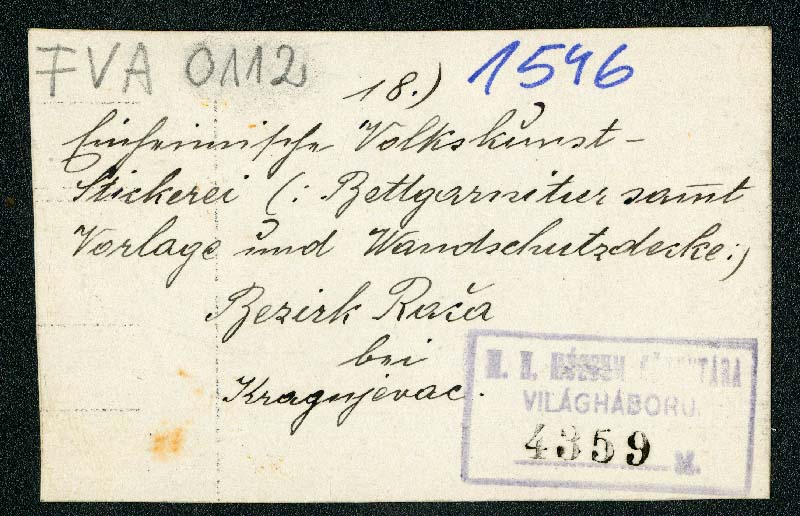 FVA 0112
18.) 1546
Einheimische Volkskunst-
Stickerei (: Bettgarnitur samt
Vorlage und Wandschutzdecke :)
Bezirk Rača
bei
Kragujevac.
M. N. MÚZEUM KÖNYVTÁRA
VILÁGHÁBORÚ.
4359 M.